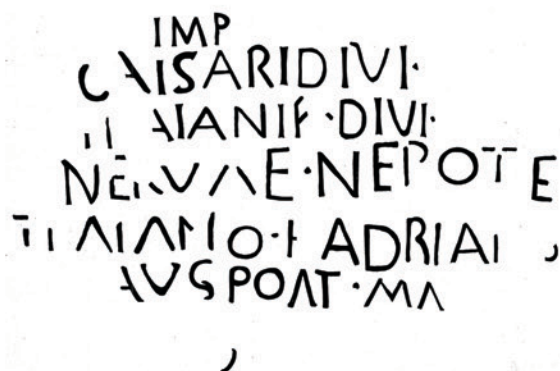 IMP
CAISARIDIVI·
AIANIF·DIVI·
NERVAE·NEPOTE
AIANO· ADRIAI
AVGPOAT·MA